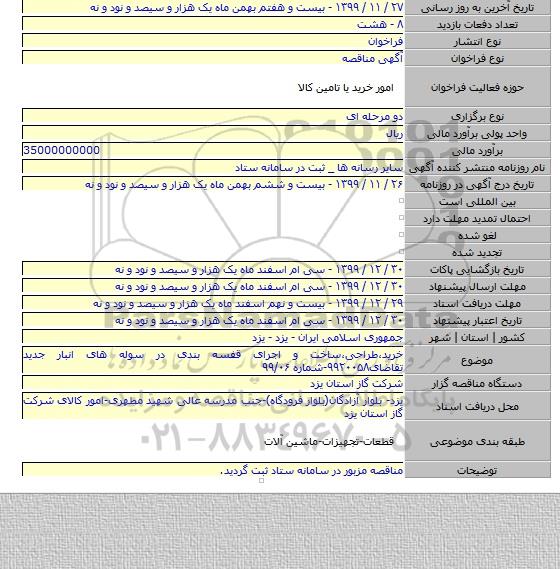 تاریخ آخرین به روز رسانی ۲۷ / ۱۱ / ۱۳۹۹ - بیست و هفتم بهمن ماه یک هزار و سیصد و نود و نه
تعداد دفعات بازدید ۸ - هشت
نوع انتشار فراخوان
نوع فراخوان آگهی مناقصه
حوزه فعالیت فراخوان امور خرید یا تامین کالا
نوع برگزاری دو مرحله ای
واحد پولی برآورد مالی ریال
برآورد مالی 35000000000
نام روزنامه منتشر کننده آگهی سایر رسانه ها _ ثبت در سامانه ستاد
تاریخ درج آگهی در روزنامه ۲۶ / ۱۱ / ۱۳۹۹ - بیست و ششم بهمن ماه یک هزار و سیصد و نود و نه
بین المللی است
احتمال تمدید مهلت دارد
لغو شده
تجدید شده
تاریخ بازگشایی پاکات ۳۰ / ۱۲ / ۱۳۹۹ - سی ام اسفند ماه یک هزار و سیصد و نود و نه
مهلت ارسال پیشنهاد ۳۰ / ۱۲ / ۱۳۹۹ - سی ام اسفند ماه یک هزار و سیصد و نود و نه
مهلت دریافت اسناد ۲۹ / ۱۲ / ۱۳۹۹ - بیست و نهم اسفند ماه یک هزار و سیصد و نود و نه
تاریخ اعتبار پیشنهاد ۳۰ / ۱۲ / ۱۳۹۹ - سی ام اسفند ماه یک هزار و سیصد و نود و نه
کشور | استان | شهر جمهوری اسلامی ایران - یزد - یزد
موضوع خرید،طراحی،ساخت و اجرای قفسه بندی در سوله های انبار جدید
تقاضای۹۹۲۰۰۵۸-شماره ۹۹/۰۶
دستگاه مناقصه گزار شرکت گاز استان یزد
محل دریافت اسناد یزد- بلوار آزادگان(بلوار فرودگاه)-جنب مدرسه عالی شهید مطهری-امور کالای شرکت
گاز استان یزد
طبقه بندی موضوعی قطعات-تجهیزات-ماشین آلات
توضیحات مناقصه مزبور در سامانه ستاد ثبت گردید.
ParsNamadData
۰۲۱-۸۸۳۴۹۶۷۰-۵